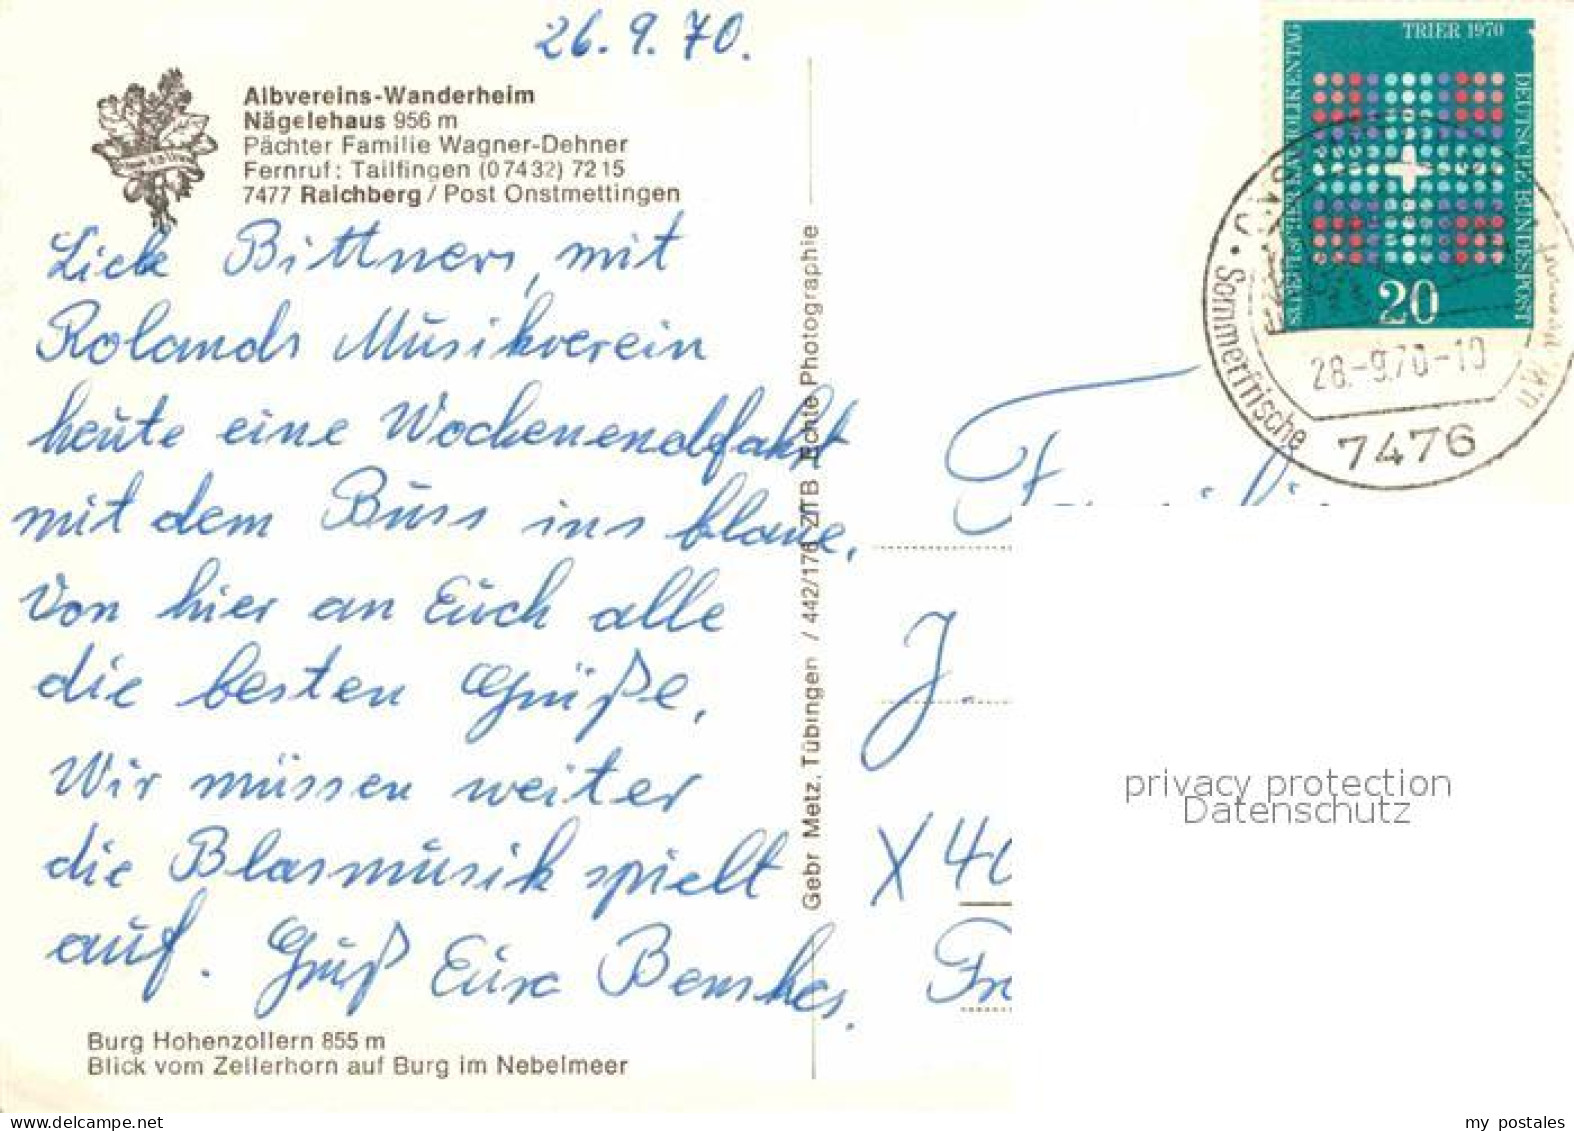 26. 9. 70.
Albvereins-Wanderheim
Nägelehaus 956 m
Pächter Familie Wagner-Dehner
Fernruf: Tailfingen (07432) 7215
7477 Raichberg / Post Onstmettingen
Liebe Bittners, mit
Rolands Musikverein
heute eine Wochenendfahrt
mit dem Buss ins blaue.
Von hier an Euch alle
die besten Grüße.
Wir müssen weiter
die Blasmusik spielt
auf. Gruß Eure
Burg Hohenzollern 855 m
Blick vom Zellerhorn auf Burg im Nebelmeer
Gebr Metz, Tübingen / 442/176 ZTB Echte Photographie
TRIER 1970
DEUTSCHE BUNDESPOST
83. DEUTSCHER KATHOLIKENTAG
20
28.-9.70-10
Sommerfrische
7476
J.
X 40
Fr
privacy protection
Datenschutz
my postales